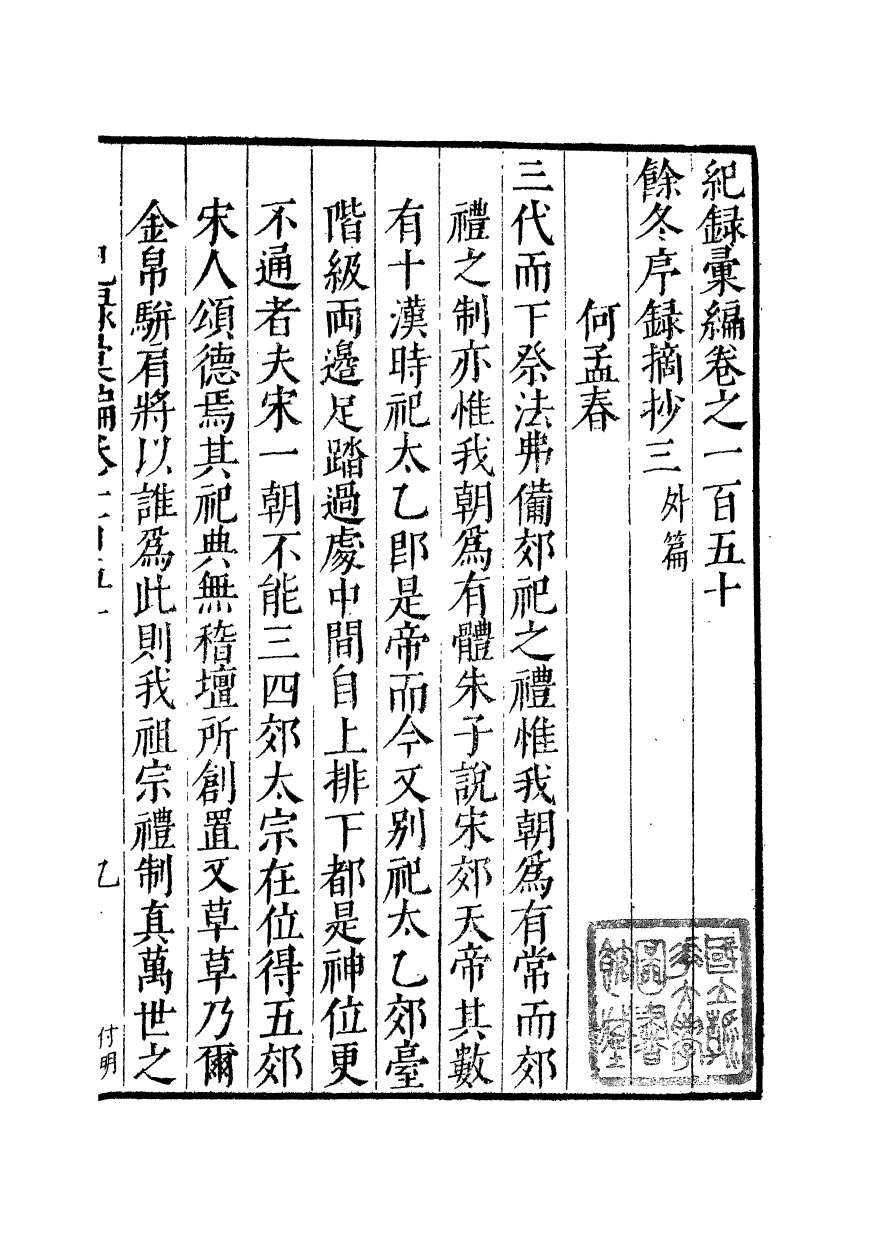 紀録彙編卷之一百五十
餘冬序録摘抄三 外篇
何孟春
三代而下祭法弗備郊祀之禮惟我朝爲有常而郊
禮之制亦惟我朝爲有體朱子說宋郊天帝其數
有十漢時祀太乙即是帝而今又别祀太乙郊臺
階級両邉足踏過處中間自上排下都是神位更
不通者夫宋一朝不能三四郊太宗在位得五郊
宋人頌德焉其祀典無稽壇所創置又草草乃爾
金帛駢肩將以誰爲此則我祖宗禮制真萬世之
乙
付明